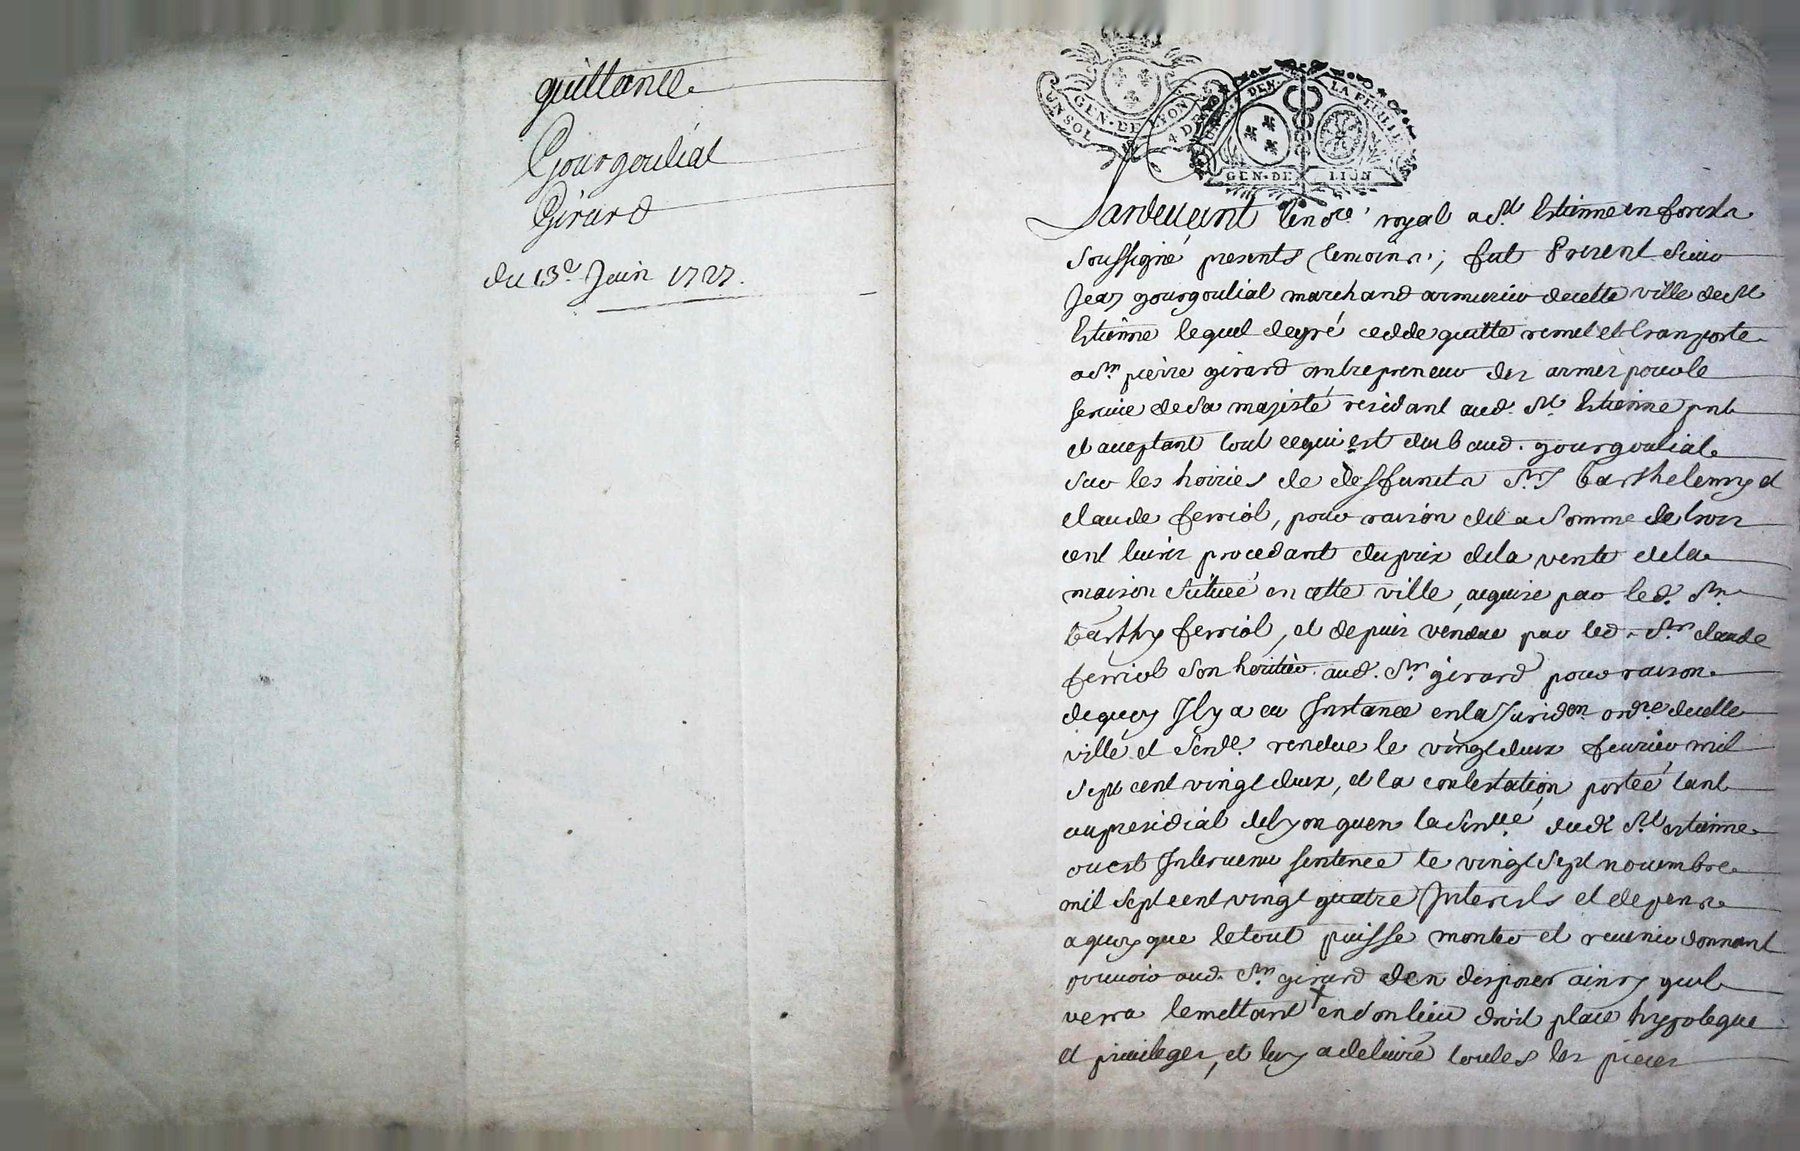 quittance
Gourgouliat
Girard
du 13e. Juin 1727.
UN SOL 4 DEN
GEN. DE LYON
DEN. LA FEUILLE
GEN. DE LION
Pardeuant le no.re royal a St. Estienne en forests
soussigné presents temoins; fut Present sieur
Jean gourgouliat marchand armurier de cette ville de St
Estienne lequel de gré cedde quitte remet et transporte
a Sr. pierre girard entrepreneur des armes pour le
seruice de Sa majesté residant aud. St. Estienne pnt
et aueptant tout ce qui est dub aud. gourgouliat
sur les hoiries de desfuncts Srs barthelemy et
claude ferriol, pour raison de la somme de trois
cent liures procedant du prix de la vente de la
maison scituée en cette ville, aquise par led. Sr.
barthy ferriol, et depuis vendue par led. Sr. claude
ferriol son heritier aud. Sr. girard pour raison
de quoy Il y a eu Instance en la Juridon. ordre. de cette
ville et Sence. rendue le vingt deux feurier mil
sept cent vingt deux, et la contestation portée tant
au presidial de lyon quen la Senée. dud. St. estienne
ou est Interuenu sentence le vingt sept nouembre
mil sept cent vingt quatre Interests et depens
a quoy que le tout puisse monter et reuenir donnant
pouuoir aud. Sr. girard den disposer ainsy quil
verra le mettant + en son lieu droit place hypoteque
et priuileges, et luy a deliuré toutes les pieces